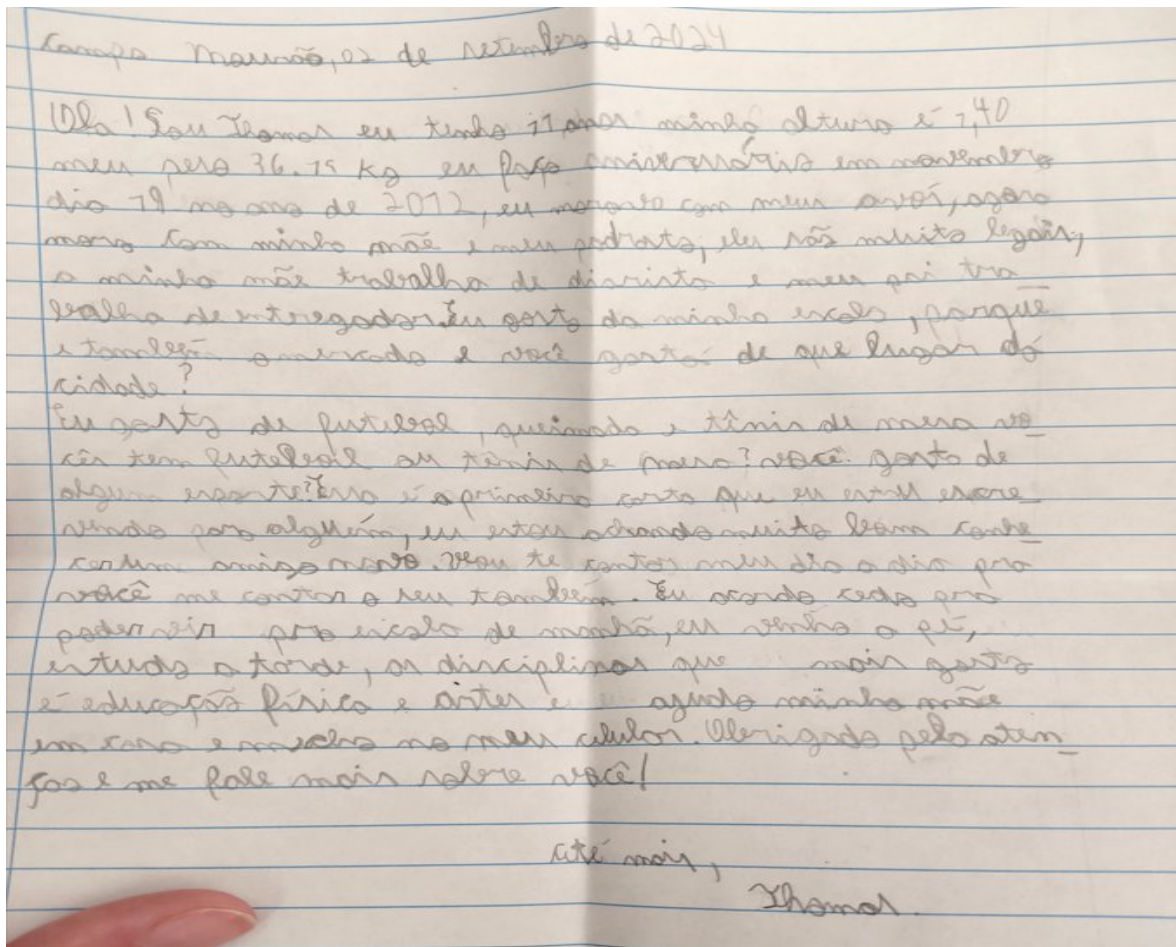 Campo Mourão, 02 de setembro de 2024
Ola! Sou Thomas eu tenho 11 anos minha altura é 1,40
meu peso 36.15 Kg eu faço aniverssário em novembro
dia 19 no ano de 2012, eu morava com meus avós, agora
moro com minha mãe e meu padrasto, eles são muito legais,
a minha mãe trabalha de diarista e meu pai tra
balha de entregador. Eu gosto da minha escola, parque
e também o mercado e você gosta de que lugar da
cidade?
Eu gosto de futebol, queimada e tênis de mesa vo_
cês tem futebol ou tênis de mesa? você gosta de
algum esporte? Essa é a primeira carta que eu estou escre_
vendo para alguém, eu estou achando muito bom conhe_
cer um amigo novo. Vou te contar meu dia a dia pra
você me contar o seu também. Eu acordo cedo pra
poder vir pra escola de manhã, eu venho a pé,
estudo a tarde, as disciplinas que mais gosto
é educação física e artes e ajudo minha mãe
em casa e no meu celular. Obrigado pela aten_
ção e me fale mais sobre você!
até mais,
Thomas.